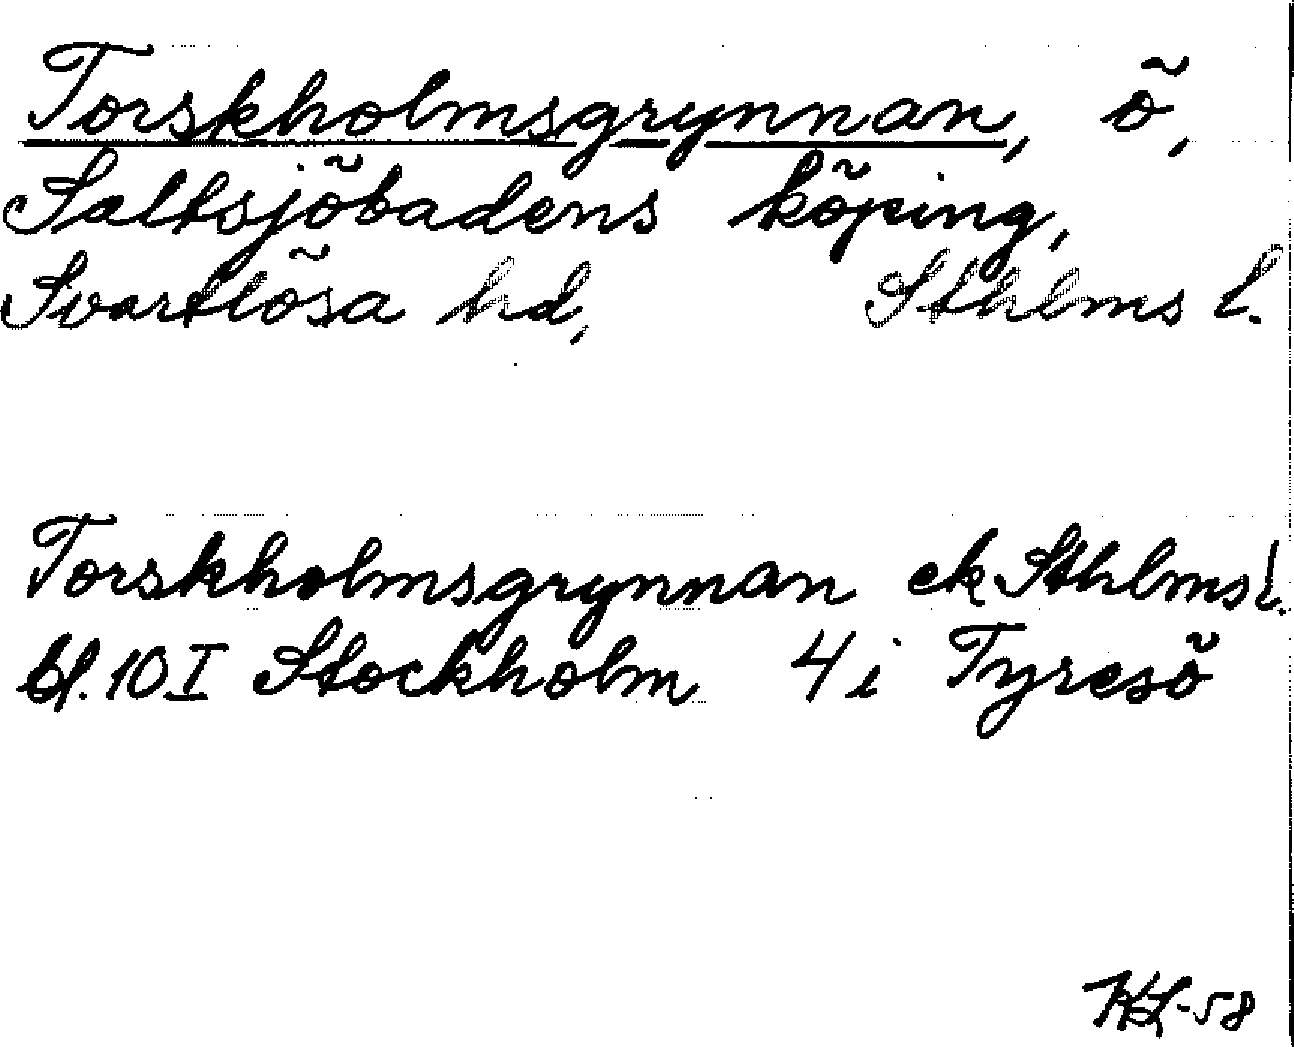 Torskholmsgrynnan, ö,
Saltsjöbadens köping,
Svartlösa hd, Sthlms l.
Torskholmsgrynnan ek Sthlms l.
bl. 10 I Stockholm 4 i Tyresö
KL-58